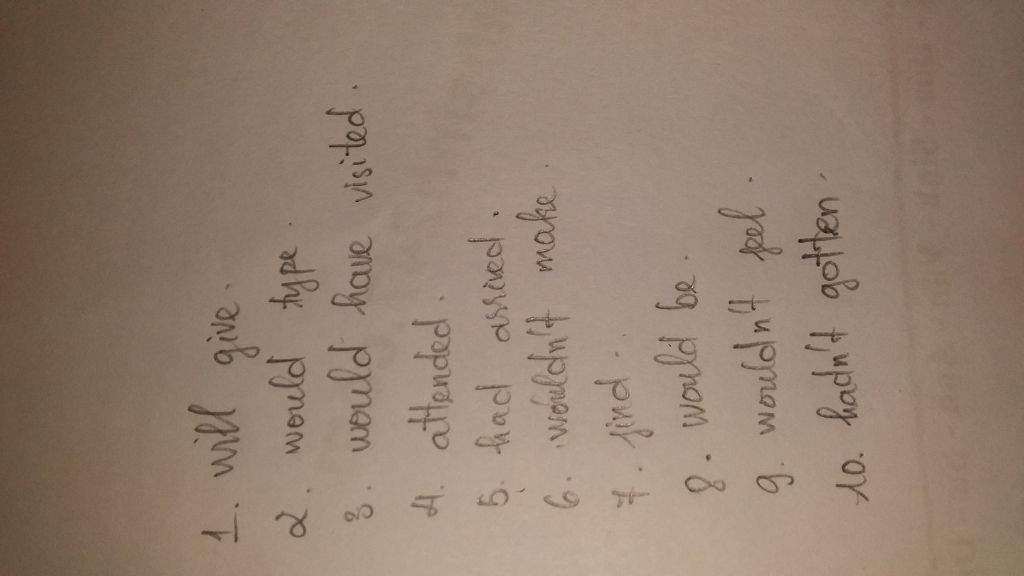 1. will give.
2. would type.
3. would have visited.
4. attended.
5. had arrived.
6. wouldn't make.
7. find.
8. would be.
9. wouldn't feel.
10. hadn't gotten.